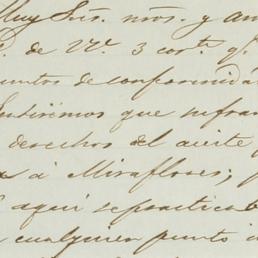 Muy Srs. mos. y am
de Vs. 3 corte. q.
puntos de conformida
Sentirémos que sufran
derechos del aceite
á Miraflores;
aquí se practica
cualquier punto